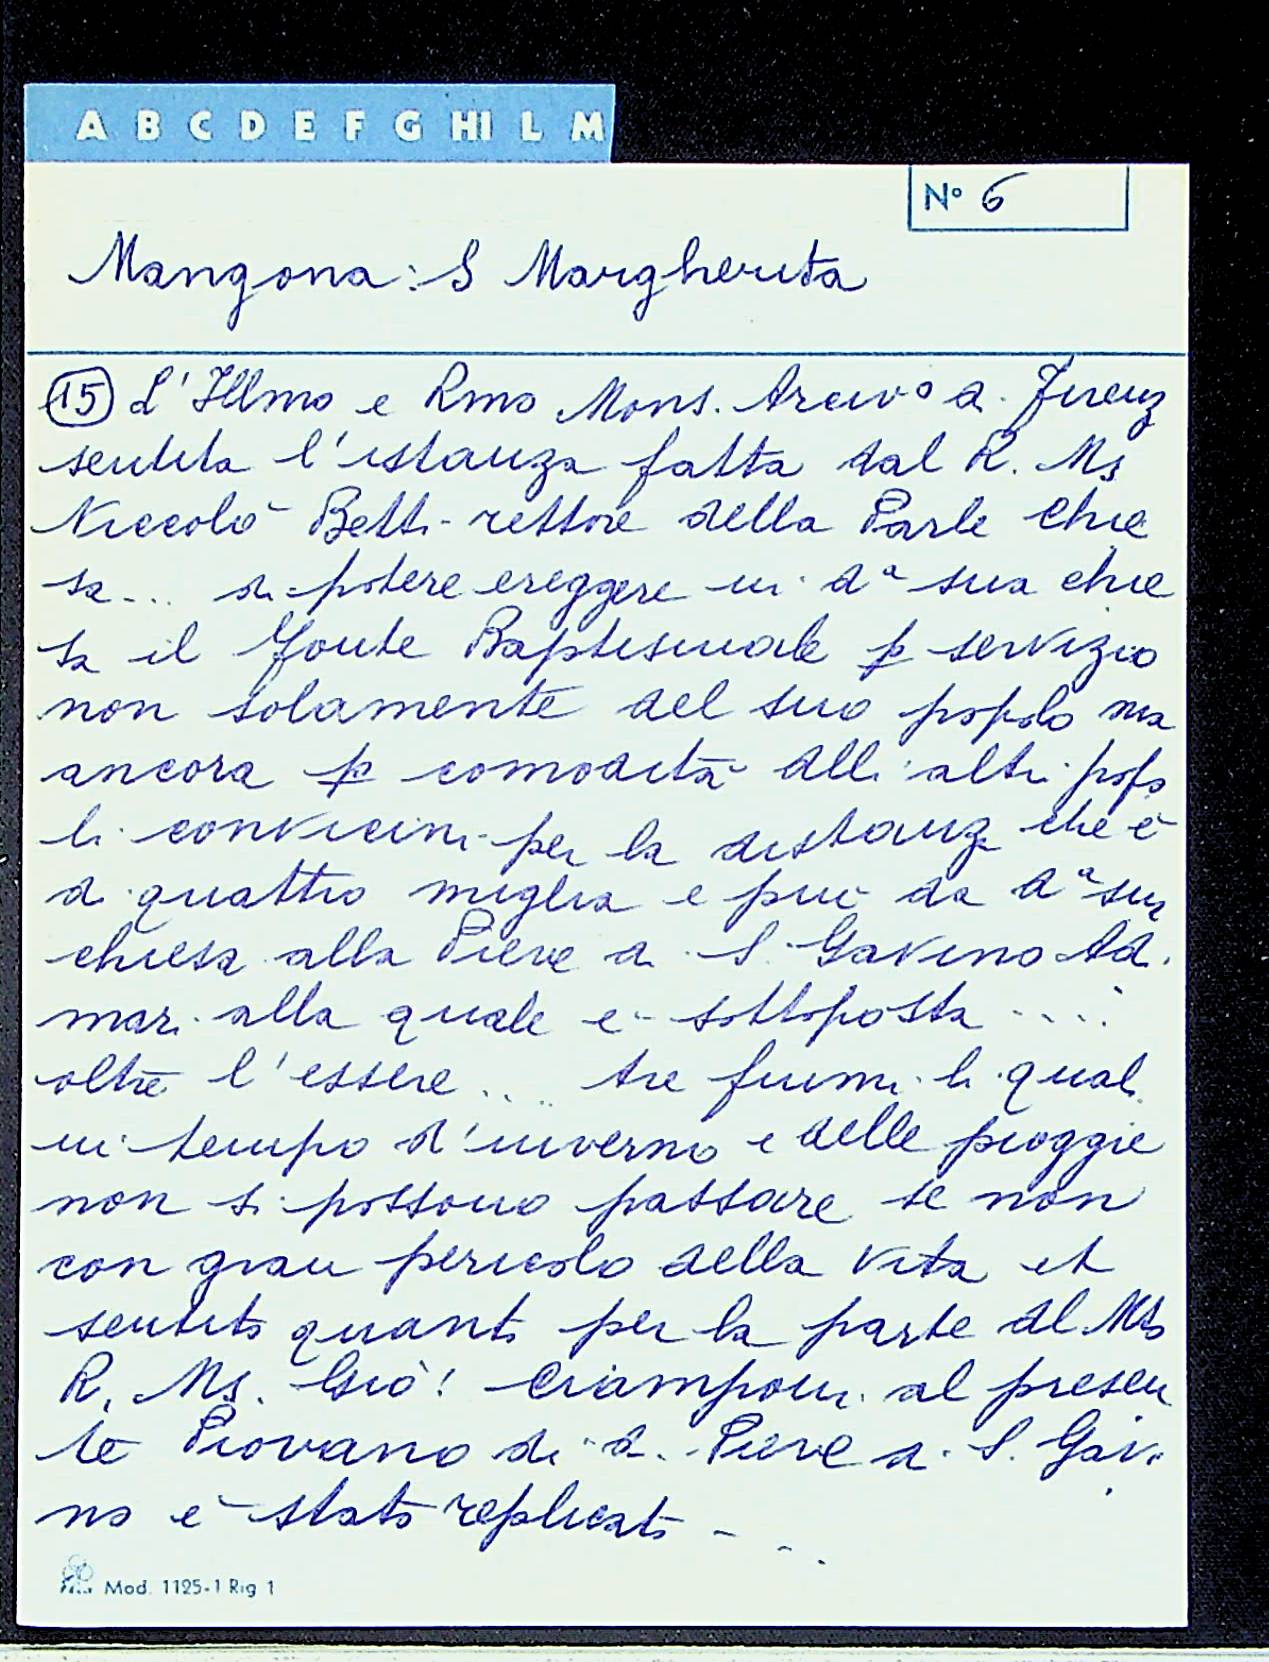 A B C D E F G HI L M
N° 6
Mangona: S Margherita
15 L'Illmo e Rmo Mons. Arcivo di Firenz
sentita l'istanza fatta dal R. Ms
Niccolò Betti rettore della Parle chie
sa... di potere ereggere in da sua chie
sa il Fonte Baptismale p servizio
non solamente del suo popolo ma
ancora p comodità delli altri popo
li convicini per la distanz che è
di quattro miglia e più da da sua
chiesa alla Pieve di S. Gavino Ad.
mari alla quale è sottoposta ....
oltre l'essere .... tre fiumi li quali
in tempo d'inverno e delle pioggie
non si possono passare se non
con gran pericolo della vita et
sentito quanto per la parte del Mto
R. Ms. Giò: Ciamponi al presen
te Piovano di d. Pieve di S. Gavi
no è stato replicato ...
Mod. 1125-1 Rig 1